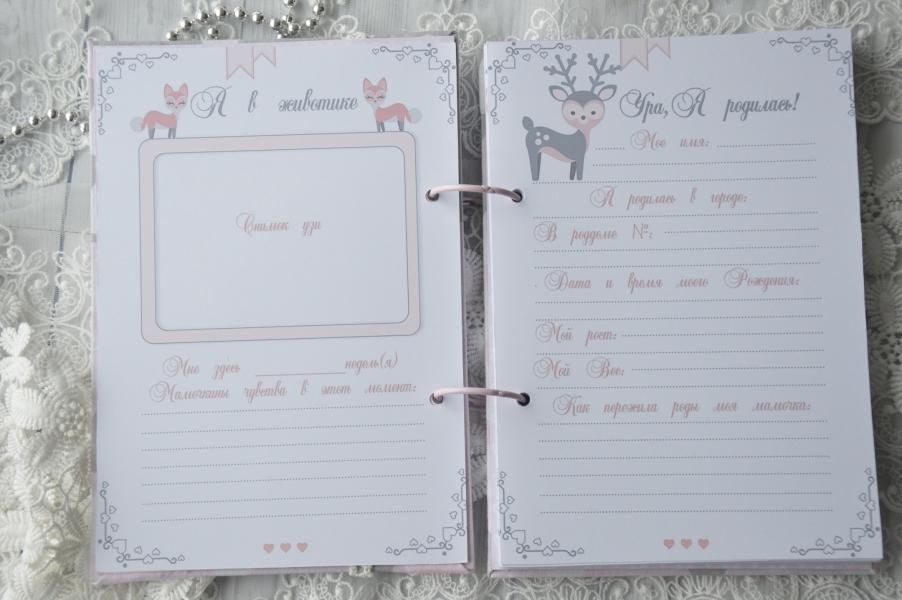 Я в животике
Снимок узи
Мне здесь __________ недель(я)
Мамочкины чувства в этот момент:
Ура, Я родилась!
Мое имя:
Я родилась в городе:
В роддоме №:
Дата и время моего Рождения:
Мой рост:
Мой Вес:
Как пережила роды моя мамочка: